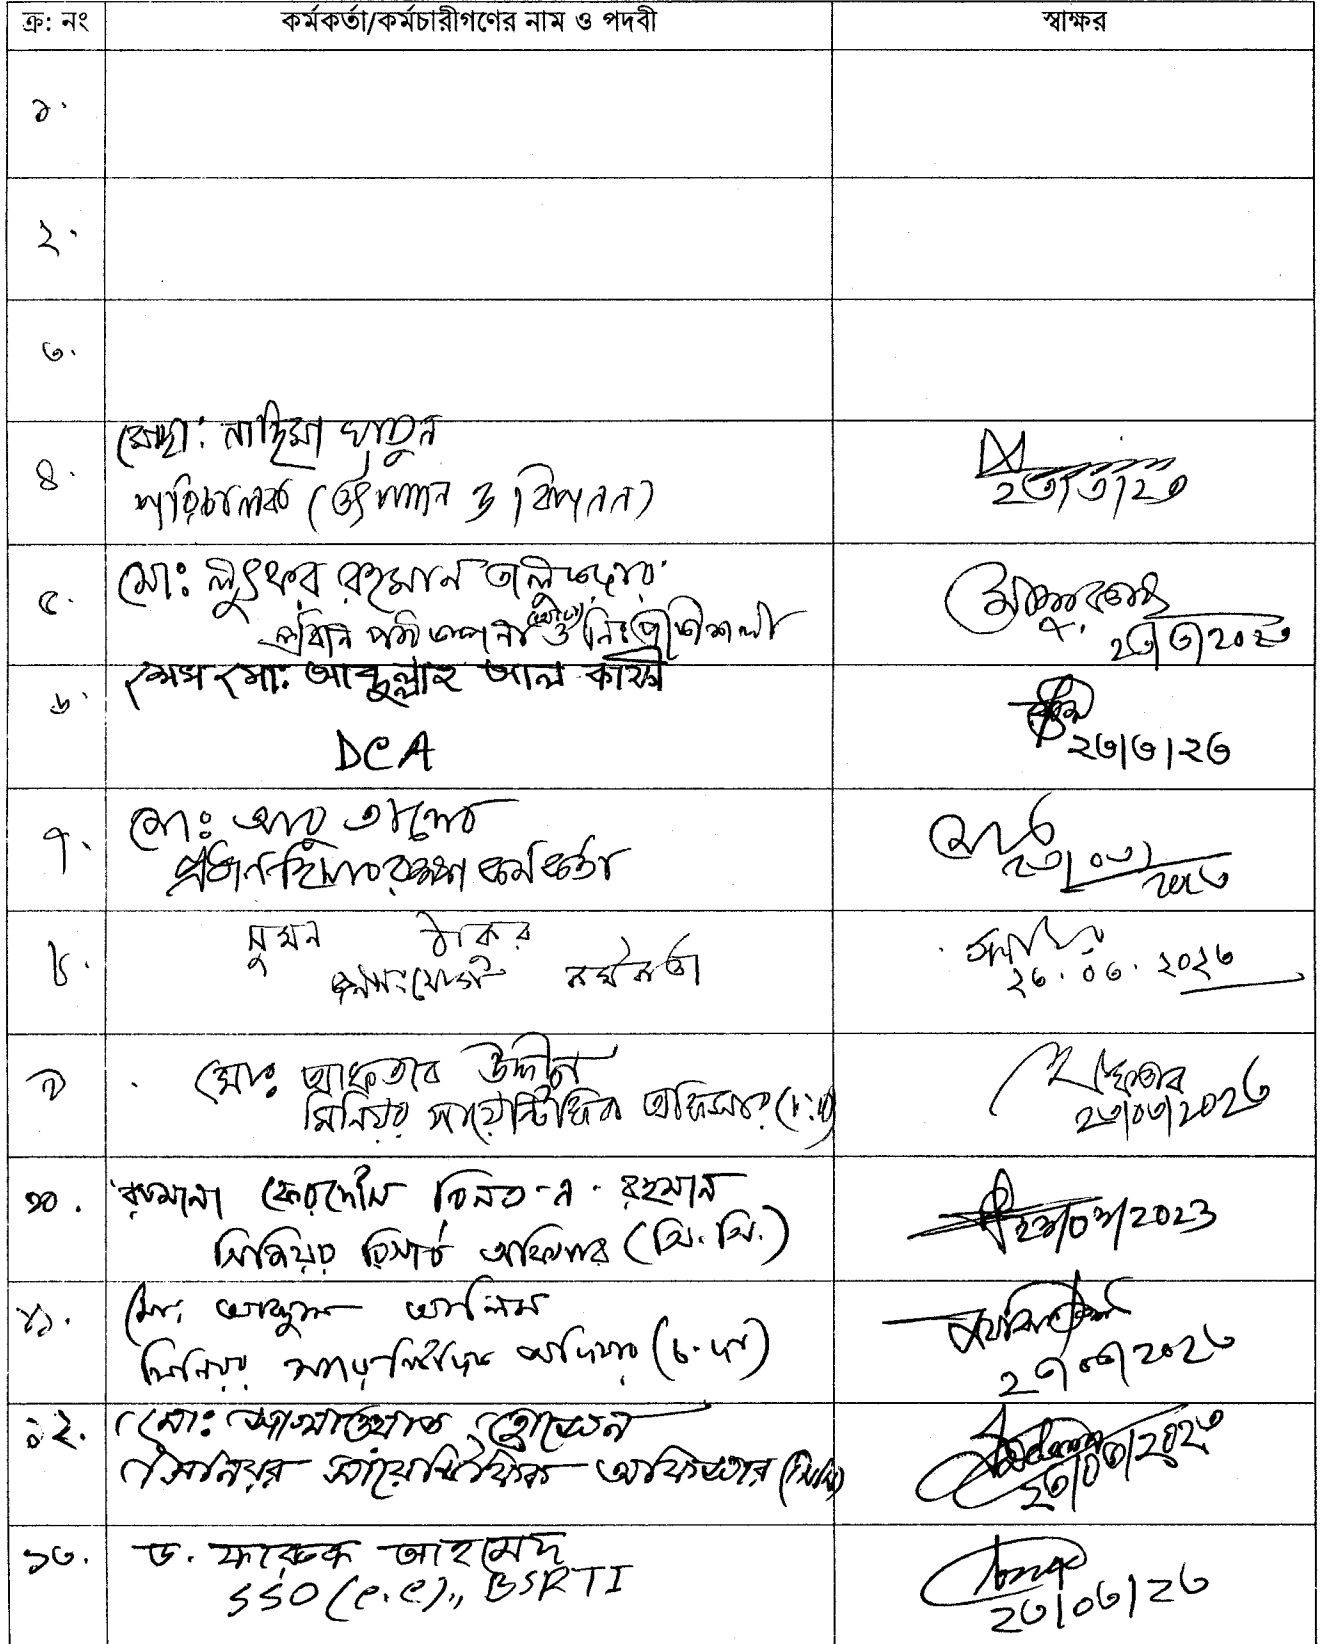 ক্র: নং কর্মকর্তা/কর্মচারীগণের নাম ও পদবী স্বাক্ষর
১.
২.
৩.
৪. মোছা: নাছিমা খাতুন
পরিচালক (উৎপাদন ও বিপনন) ২৩/৩/২৩
৫. মো: লুৎফর রহমান তালুকদার
প্রধান ও ২৩/৩/২০২৩
৬. মো: আব্দুল্লাহ আল কাফী
DCA ২৩/৩/২৩
৭. মো: আবু তালেব
প্রধান হিসাবরক্ষণ কর্মকর্তা ২৩/০৩/২০২৩
৮. সুমন ঠাকুর
জনসংযোগ কর্মকর্তা ২৩.০৩.২০২৩
৯ মো: আফতাব উদ্দীন
সিনিয়র সায়েন্টিফিক অফিসার ২৩/০৩/২০২৩
১০. রুমানা ফেরদৌস বিনত-এ-রহমান
সিনিয়র রিসার্চ অফিসার (সি.সি.) 23/03/2023
১১. মো: আব্দুল আলিম
সিনিয়র সায়েন্টিফিক অফিসার (চ.দা) ২৩/০৩/২০২৩
১২. মো: হোসেন
সিনিয়র সায়েন্টিফিক অফিসার ২৩/০৩/২০২৩
১৩. ড. ফারুক আহমেদ
SSO (c.c)., BSRTI ২৩/০৩/২৩